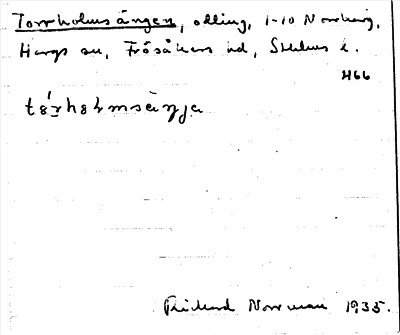 Torrholmsängen, odling, 1-10 Norrberg,
Hargs sn, Frösåkers hd, Sthlms l.
466
tɛ́rhɛlmsàŋja
Rickard Norrman 1935.